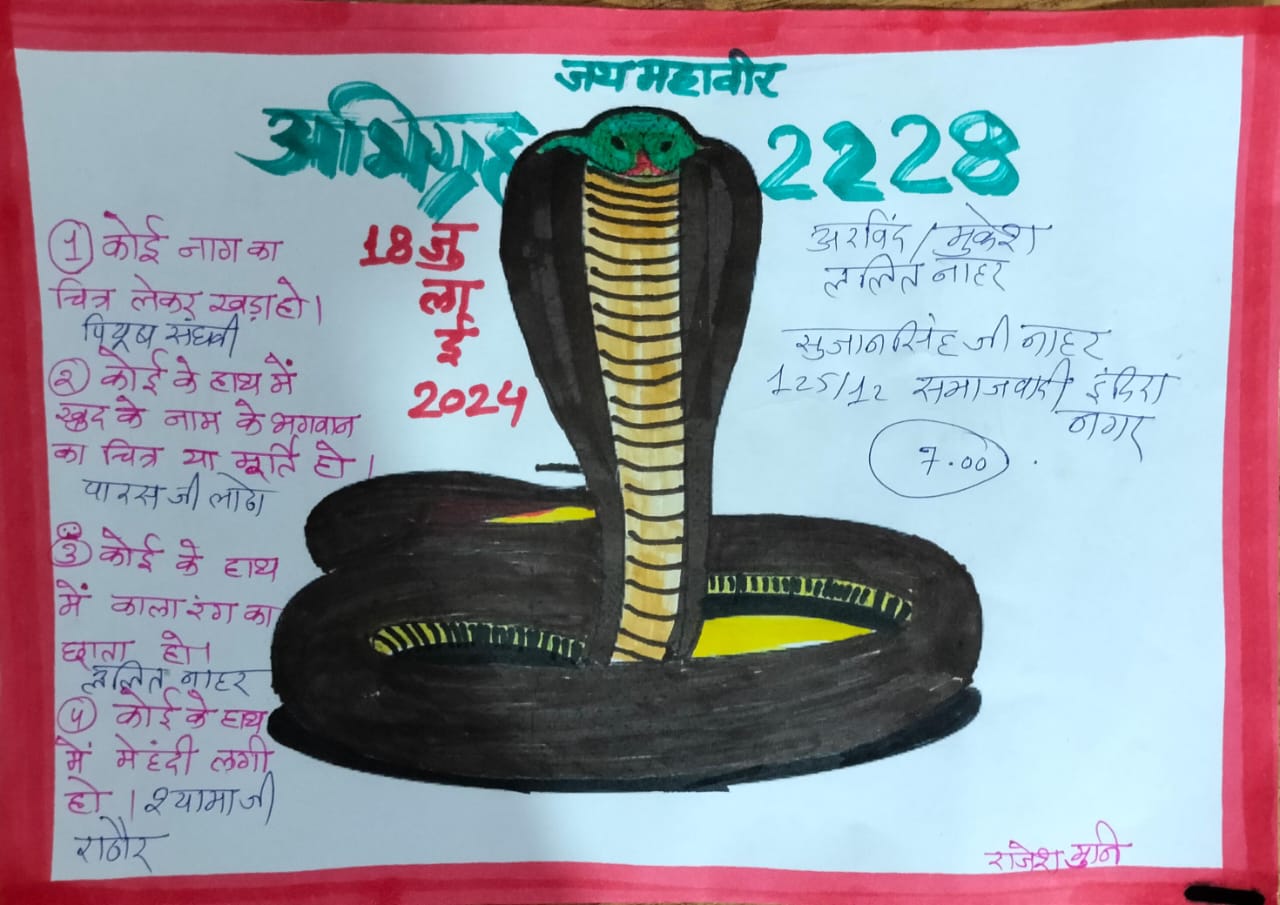 जय महावीर
अभिग्रह 2228
18 जु
ला
ई
2024
1 कोई नाग का
चित्र लेकर खड़ा हो।
पियूष संघवी
2 कोई के हाथ में
खुद के नाम के भगवान
का चित्र या मूर्ति हो।
पारस जी लोढा
3 कोई के हाथ
में काला रंग का
छाता हो।
ललित नाहर
4 कोई के हाथ
में मेहंदी लगी
हो। श्यामा जी
राठौर
अरविंद / मुकेश
ललित नाहर
सुजानसिंह जी नाहर
125/12 समाजवादी इंदिरा
नगर
7.00
राजेश मुनि